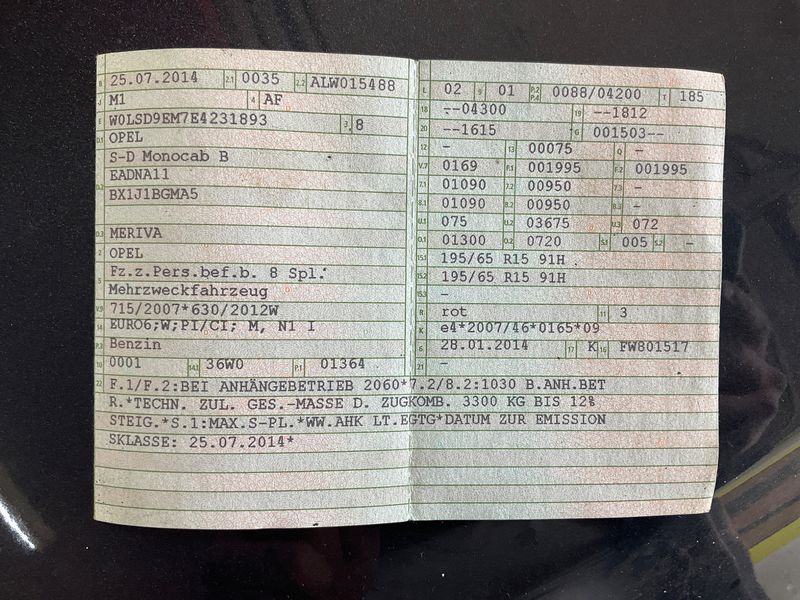 B 25.07.2014 2.1 0035 2.2 ALW015488
J M1 4 AF
E W0LSD9EM7E4231893 3 8
D.1 OPEL
S-D Monocab B
D.2 EADNA11
BX1J1BGMA5
D.3 MERIVA
2 OPEL
5 Fz.z.Pers.bef.b. 8 Spl.
Mehrzweckfahrzeug
V.9 715/2007*630/2012W
14 EURO6;W;PI/CI; M, N1 I
P.3 Benzin
10 0001 14.1 36W0 P.1 01364
L 02 9 01 P.2 P.4 0088/04200 T 185
18 --04300 19 --1812
20 --1615 G 001503--
12 - 13 00075 Q -
V.7 0169 F.1 001995 F.2 001995
7.1 01090 7.2 00950 7.3 -
8.1 01090 8.2 00950 8.3 -
U.1 075 U.2 03675 U.3 072
O.1 01300 O.2 0720 S.1 005 S.2 -
15.1 195/65 R15 91H
15.2 195/65 R15 91H
15.3 -
R rot 11 3
K e4*2007/46*0165*09
6 28.01.2014 17 K 16 FW801517
21 -
22 F.1/F.2:BEI ANHÄNGEBETRIEB 2060*7.2/8.2:1030 B.ANH.BET
R.*TECHN. ZUL. GES.-MASSE D. ZUGKOMB. 3300 KG BIS 12%
STEIG.*S.1:MAX.S-PL.*WW.AHK LT.EGTG*DATUM ZUR EMISSION
SKLASSE: 25.07.2014*